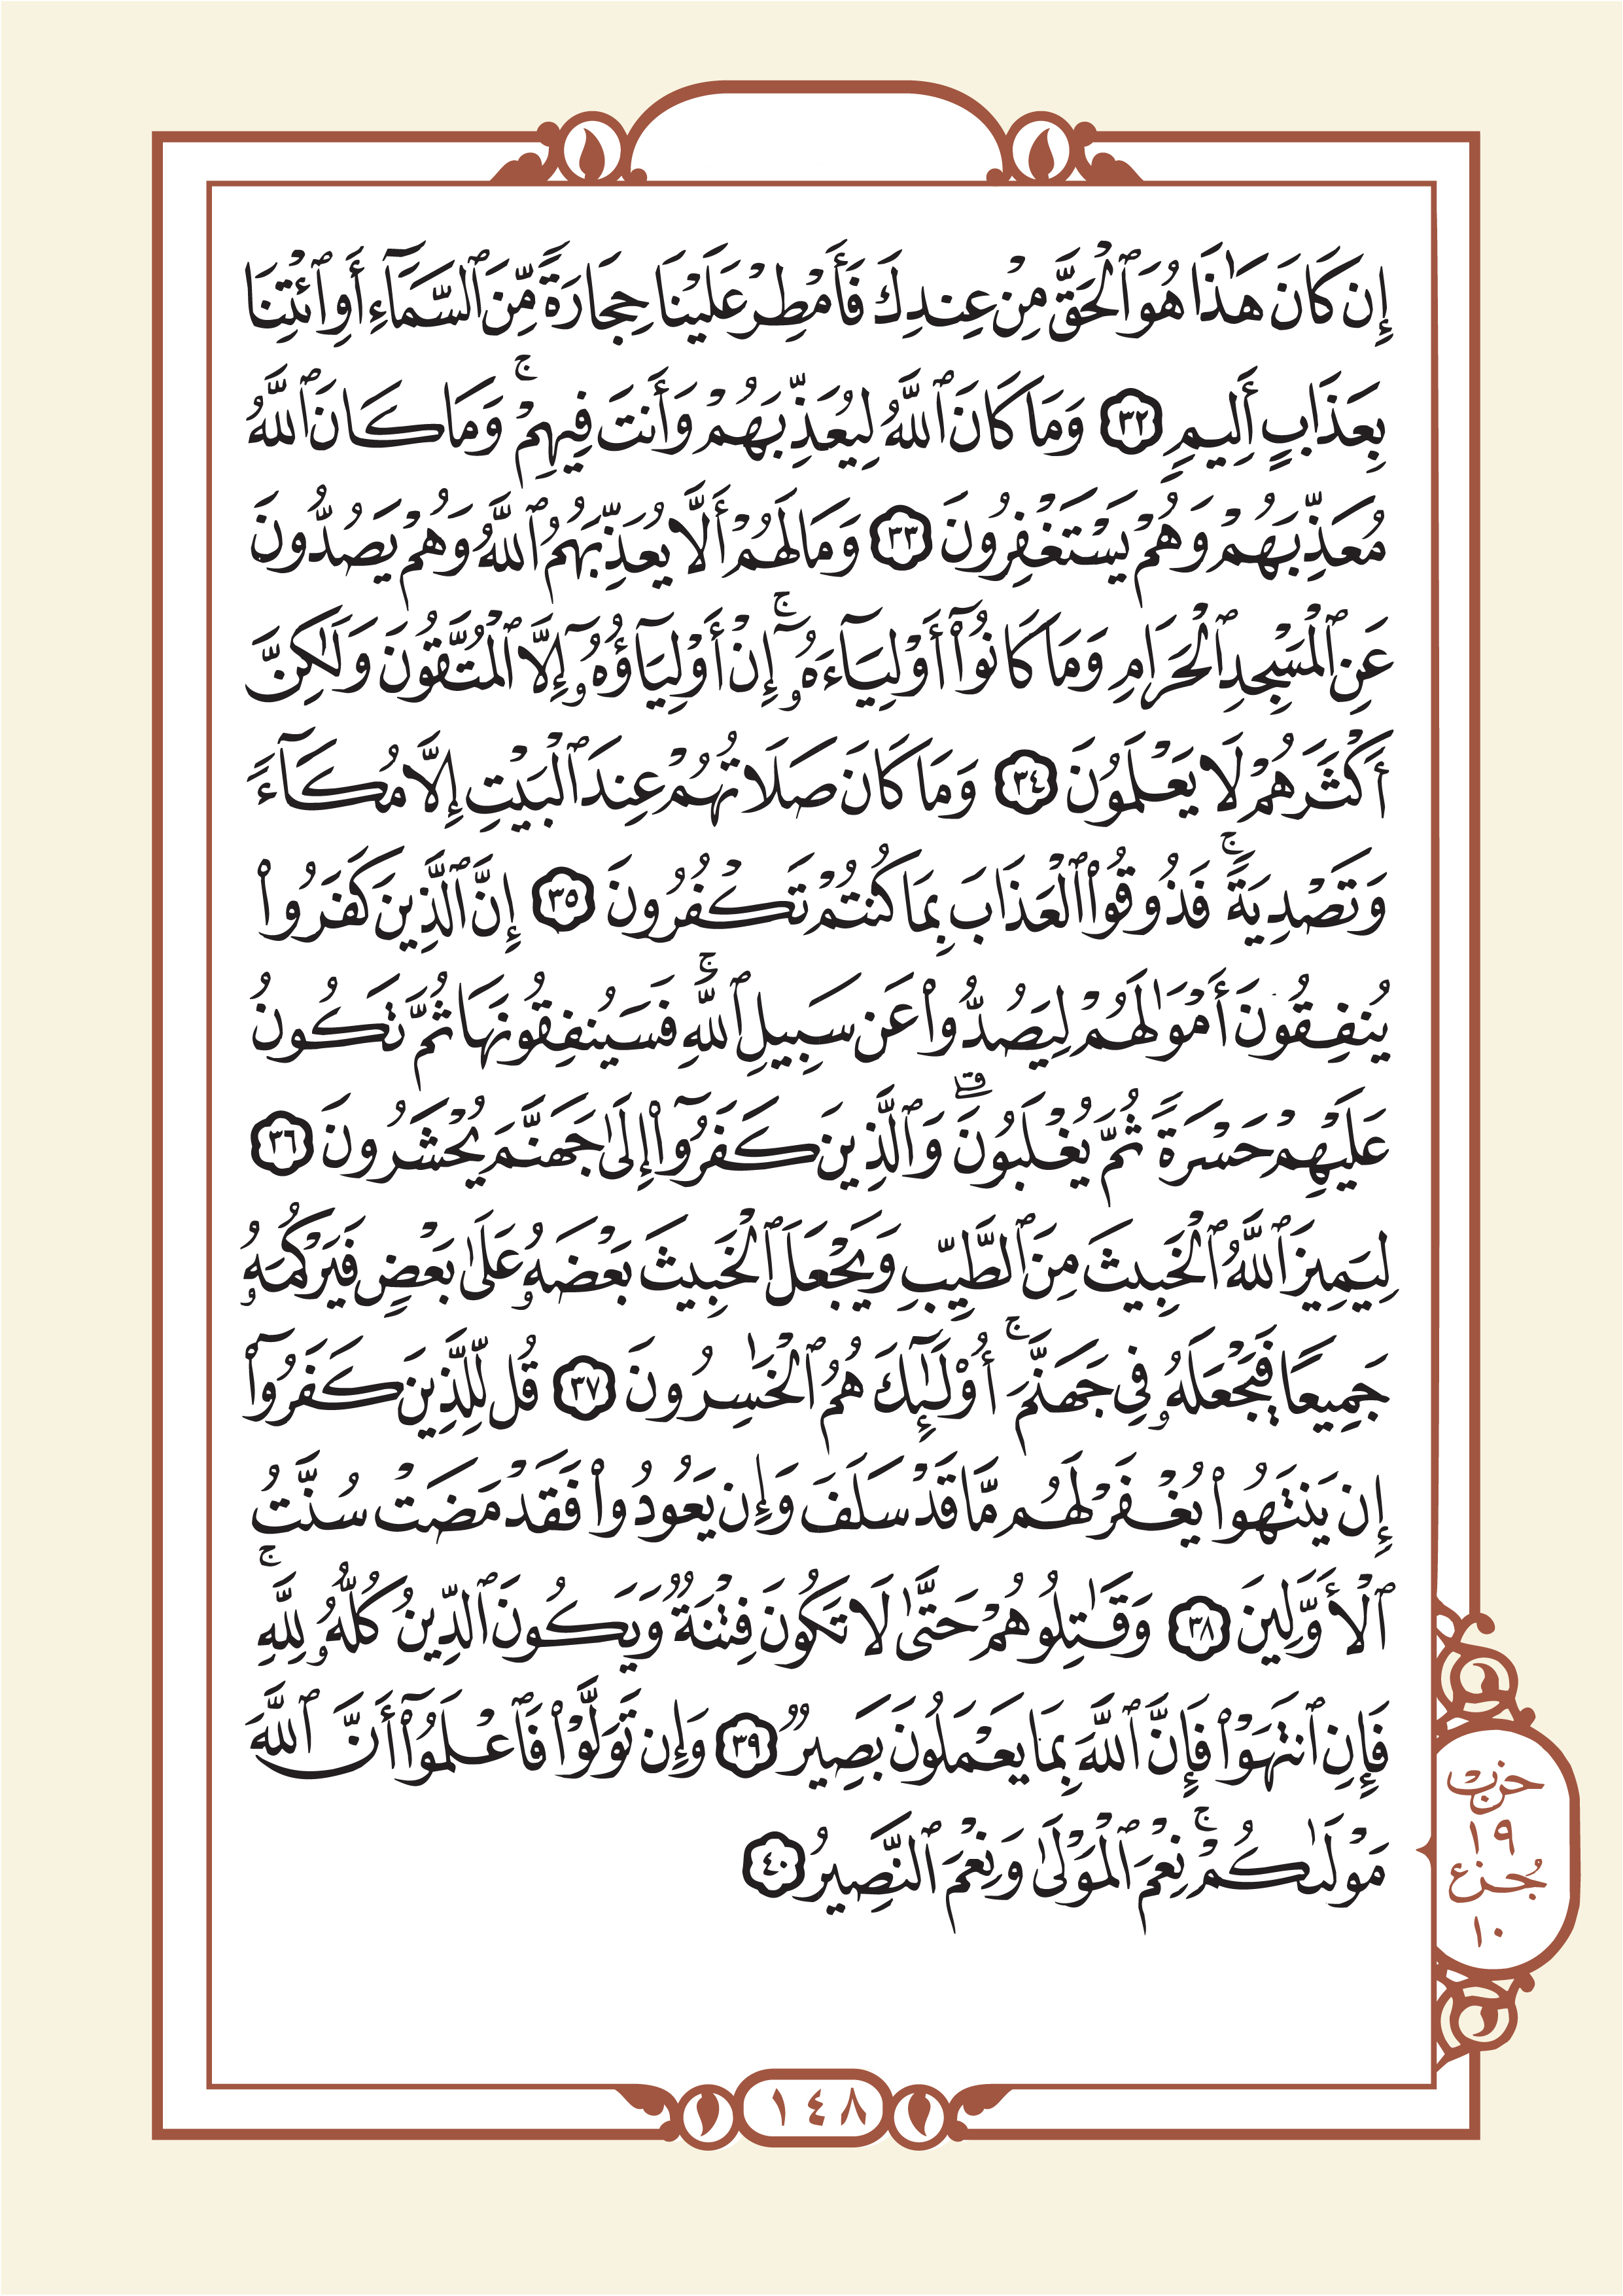 إِن كَانَ هَٰذَا هُوَ ٱلْحَقَّ مِنْ عِندِكَ فَأَمْطِرْ عَلَيْنَا حِجَارَةً مِّنَ ٱلسَّمَآءِ أَوِ ٱئْتِنَا
بِعَذَابٍ أَلِيمٍ ٣٢ وَمَا كَانَ ٱللَّهُ لِيُعَذِّبَهُمْ وَأَنتَ فِيهِمْ ۚ وَمَا كَانَ ٱللَّهُ
مُعَذِّبَهُمْ وَهُمْ يَسْتَغْفِرُونَ ٣٣ وَمَا لَهُمْ أَلَّا يُعَذِّبَهُمُ ٱللَّهُ وَهُمْ يَصُدُّونَ
عَنِ ٱلْمَسْجِدِ ٱلْحَرَامِ وَمَا كَانُوٓا۟ أَوْلِيَآءَهُۥٓ ۚ إِنْ أَوْلِيَآؤُهُۥٓ إِلَّا ٱلْمُتَّقُونَ وَلَٰكِنَّ
أَكْثَرَهُمْ لَا يَعْلَمُونَ ٣٤ وَمَا كَانَ صَلَاتُهُمْ عِندَ ٱلْبَيْتِ إِلَّا مُكَآءً
وَتَصْدِيَةً ۚ فَذُوقُوا۟ ٱلْعَذَابَ بِمَا كُنتُمْ تَكْفُرُونَ ٣٥ إِنَّ ٱلَّذِينَ كَفَرُوا۟
يُنفِقُونَ أَمْوَٰلَهُمْ لِيَصُدُّوا۟ عَن سَبِيلِ ٱللَّهِ ۚ فَسَيُنفِقُونَهَا ثُمَّ تَكُونُ
عَلَيْهِمْ حَسْرَةً ثُمَّ يُغْلَبُونَ ۗ وَٱلَّذِينَ كَفَرُوٓا۟ إِلَىٰ جَهَنَّمَ يُحْشَرُونَ ٣٦
لِيَمِيزَ ٱللَّهُ ٱلْخَبِيثَ مِنَ ٱلطَّيِّبِ وَيَجْعَلَ ٱلْخَبِيثَ بَعْضَهُۥ عَلَىٰ بَعْضٍ فَيَرْكُمَهُۥ
جَمِيعًا فَيَجْعَلَهُۥ فِى جَهَنَّمَ ۚ أُو۟لَٰٓئِكَ هُمُ ٱلْخَٰسِرُونَ ٣٧ قُل لِّلَّذِينَ كَفَرُوٓا۟
إِن يَنتَهُوا۟ يُغْفَرْ لَهُم مَّا قَدْ سَلَفَ وَإِن يَعُودُوا۟ فَقَدْ مَضَتْ سُنَّتُ
ٱلْأَوَّلِينَ ٣٨ وَقَٰتِلُوهُمْ حَتَّىٰ لَا تَكُونَ فِتْنَةٌ وَيَكُونَ ٱلدِّينُ كُلُّهُۥ لِلَّهِ ۚ
فَإِنِ ٱنتَهَوْا۟ فَإِنَّ ٱللَّهَ بِمَا يَعْمَلُونَ بَصِيرٌ ٣٩ وَإِن تَوَلَّوْا۟ فَٱعْلَمُوٓا۟ أَنَّ ٱللَّهَ
مَوْلَىٰكُمْ ۚ نِعْمَ ٱلْمَوْلَىٰ وَنِعْمَ ٱلنَّصِيرُ ٤٠
حزب
١٩
جزء
١٠
١٤٨